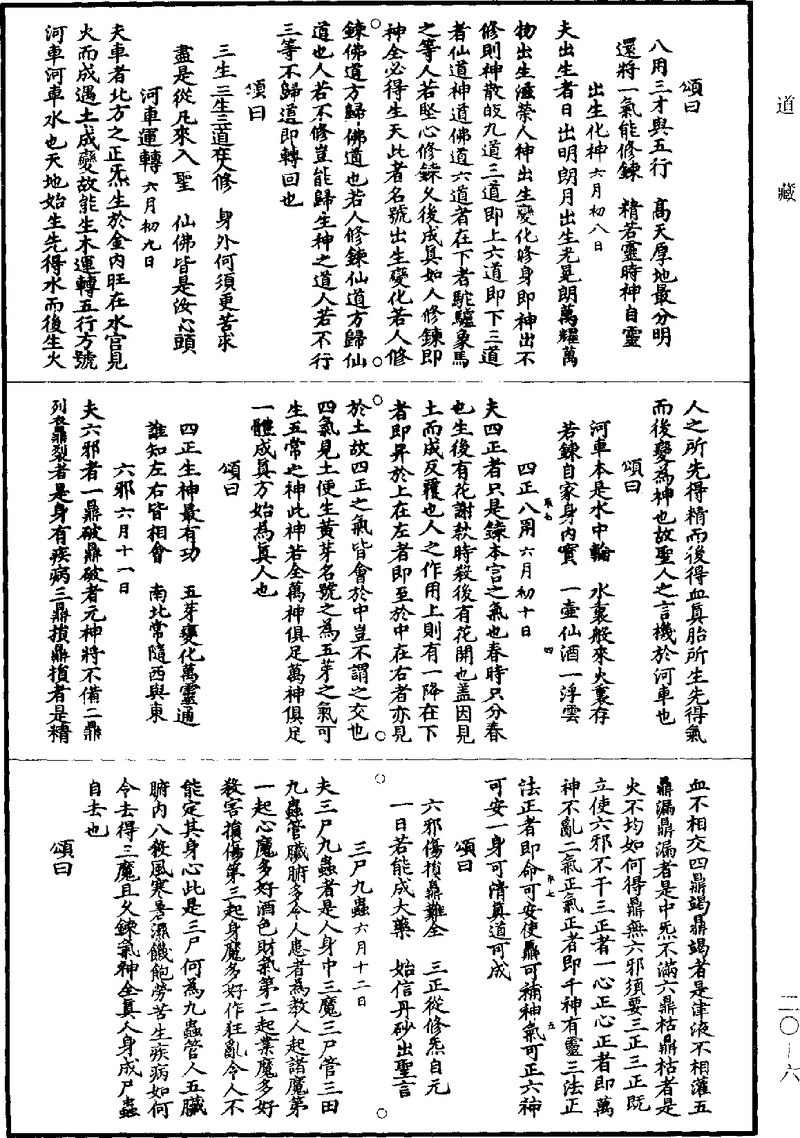 道藏
頌曰
八用三才與五行　高天厚地最分明
還將一氣能修鍊　精若靈時神自靈
出生化神六月初八日
夫出生者日出明朗月出生光晃朗萬耀萬
物出生滋榮人神出生變化修身即神出不
修則神散故九道三道即上六道即下三道
者仙道神道佛道六道者在下者駞驢象馬
之等人若堅心修鍊久後成真如人修鍊即
神全必得生天此者名號出生變化若人修
鍊佛道方歸佛道也若人修鍊仙道方歸仙
道也人若不修豈能歸生神之道人若不行
三等不歸這即轉回也
頌曰
三生二生三道在人修　身外何須更苦求
盡是從凡來入聖　仙佛皆是汝心頭
河車運轉六月初九日
夫車者北方之正炁生於金內旺在水宮見
火而成遇土成變故能生本運轉五行方號
河車河車水也天地始生先得水而後生火
人之所先得精而後得血真胎所生先得氣
而後變為神也故聖人之言機於河車也
頌曰
河車本是水中輪　水裏般來火裏存
若鍊自家身內寶　一壺仙酒一浮雲
四正八用六月初十日
夫四正者只是鍊本宮之氣也春時只分春
也生後有花謝秋時殺後有花開也蓋因見
土而成反覆也人之作用上則有一降在下
者即昇於上在左者即至於中在右者亦見
於土故四正之氣皆會於中豈不謂之交也
四氣見土便生黃芽名號之為五芽之氣可
生五常之神此神若全萬神俱足萬神俱足
一體成真方始為真人也
頌曰
四正生神最有功　五芽變化萬靈通
誰知左右皆相會　南北常隨西與東
六邪六月十一日
夫六邪者一鼎破鼎破者元神將不備二鼎
列衣鼎裂者是身有疾病三鼎損鼎損者是精
血不相交四鼎竭鼎竭者是津液不相灌五
鼎漏鼎漏者是中炁不滿六鼎枯鼎枯者是
火不均如何得鼎無六邪須要三正三正既
立使六邪不干三正者一心正心正者即萬
神不亂二氣正氣正者即千神有靈三法正
法正者即命可安使鼎可補神氣可正六神
可安一身可清真道可成
頌曰
六邪傷損鼎難全　三正從修炁自元
一日若能成大藥　始信丹砂出聖言
三尸九蟲六月十二日
夫三尸九蟲者是人身中三魔三尸管三田
九蟲管臟腑多令人患者為教人起諸魔第
一起心魔多好酒色財氣第二起業魔多好
殺害損傷第三起身魔多好作狂亂令人不
能定其身心此是三尸何為九蟲管人五臟
腑內八飲風寒暑濕饑飽勞苦生疾病如何
令去得三魔且久鍊氣神全真人身成尸蟲
自去也
頌曰
二〇-六